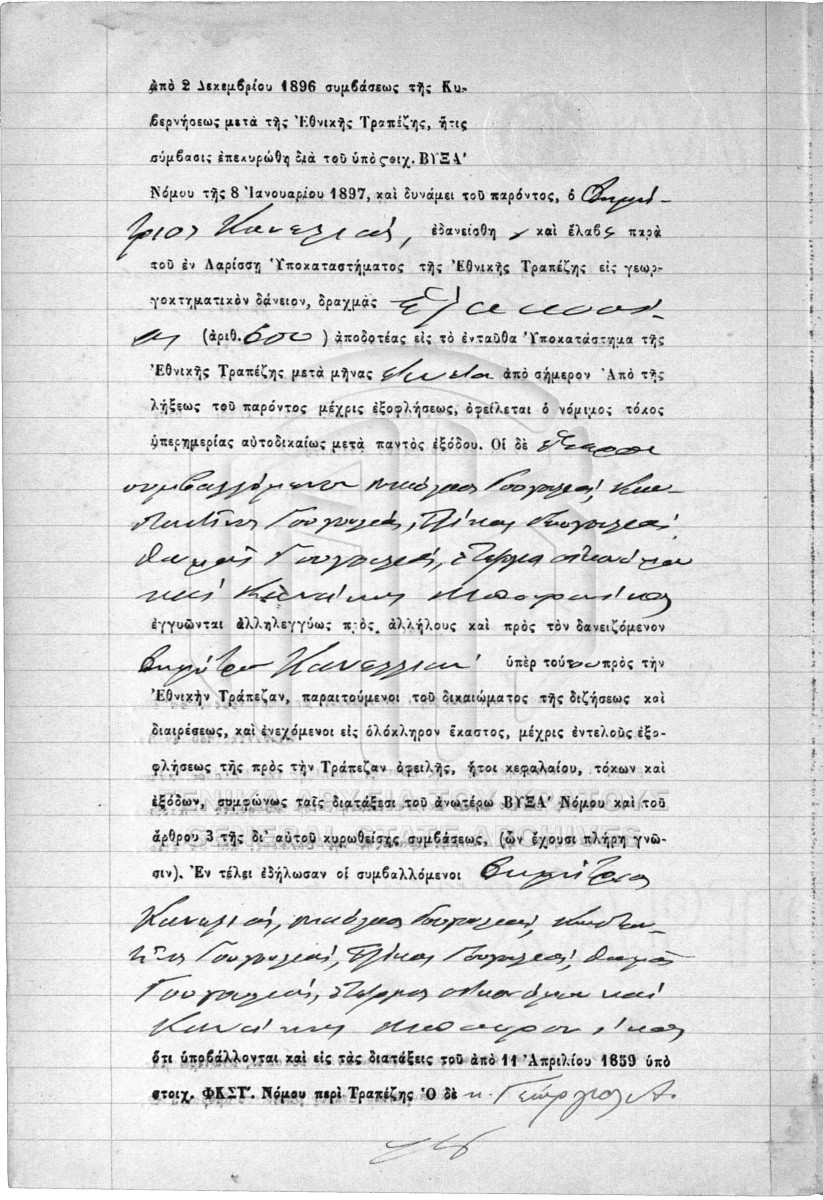 ἀπὸ 2 Δεκεμβρίου 1896 συμβάσεως τῆς Κυ-
βερνήσεως μετὰ τῆς Ἐθνικῆς Τραπέζης, ἥτις
σύμβασις ἐπεκυρώθη διὰ τοῦ ὑπὸ στοιχ. ΒΥΞΑ′
Νόμου τῆς 8 Ἰανουαρίου 1897, καὶ δυνάμει τοῦ παρόντος, ὁ Δημή-
τριος Κανελιάς, ἐδανείσθη καὶ ἔλαβε παρὰ
τοῦ ἐν Λαρίσσῃ Ὑποκαταστήματος τῆς Ἐθνικῆς Τραπέζης εἰς γεωρ-
γοκτηματικὸν δάνειον, δραχμὰς ἑξακοσί-
ας (ἀριθ. 600) ἀποδοτέας εἰς τὸ ἐνταῦθα Ὑποκατάστημα τῆς
Ἐθνικῆς Τραπέζης μετὰ μῆνας ἐννέα ἀπὸ σήμερον Ἀπὸ τῆς
λήξεως τοῦ παρόντος μέχρις ἐξοφλήσεως, ὀφείλεται ὁ νόμιμος τόκος
ὑπερημερίας αὐτοδικαίως μετὰ παντὸς ἐξόδου. Οἱ δὲ
συμβαλλόμενοι Νικόλαος Γουγουλιάς, Κωσ-
Γουγουλιάς, Γουγουλιάς,
Θωμᾶς Γουγουλιάς, Στέργιος Οἰκονόμου
καὶ
ἐγγυῶνται ἀλληλεγγύως πρὸς ἀλλήλους καὶ πρὸς τὸν δανειζόμενον
Δημήτριον Κανελλιάν ὑπὲρ τούτου πρὸς τὴν
Ἐθνικὴν Τράπεζαν, παραιτούμενοι τοῦ δικαιώματος τῆς διζήσεως καὶ
διαιρέσεως, καὶ ἐνεχόμενοι εἰς ὁλόκληρον ἕκαστος, μέχρις ἐντελοῦς ἐξο-
φλήσεως τῆς πρὸς τὴν Τράπεζαν ὀφειλῆς, ἤτοι κεφαλαίου, τόκων καὶ
ἐξόδων, συμφώνως ταῖς διατάξεσι τοῦ ἀνωτέρω ΒΥΞΑ′ Νόμου καὶ τοῦ
ΓΕΝΙΚΑ ΑΡΧΕΙΑ ΤΟΥ ΚΡΑΤΟΥΣ
ἄρθρου 3 τῆς δι' αὐτοῦ κυρωθείσης συμβάσεως, (ὧν ἔχουσι πλήρη γνῶ-
GENERAL STATE ARCHIVES
σιν). Ἐν τέλει ἐδήλωσαν οἱ συμβαλλόμενοι Δημήτριος
Κανελιάς, Νικόλαος Γουγουλιάς, Κωνσταν-
Γουγουλιάς, Γουγουλιάς, Θωμᾶς
Γουγουλιάς, Στέργιος Οἰκονόμου καὶ
ὅτι ὑποβάλλονται καὶ εἰς τὰς διατάξεις τοῦ ἀπὸ 11 Ἀπριλίου 1859 ὑπὸ
στοιχ. ΦΚΣΤ′. Νόμου περὶ Τραπέζης Ὁ δὲ κ. Γεώργιος Α.